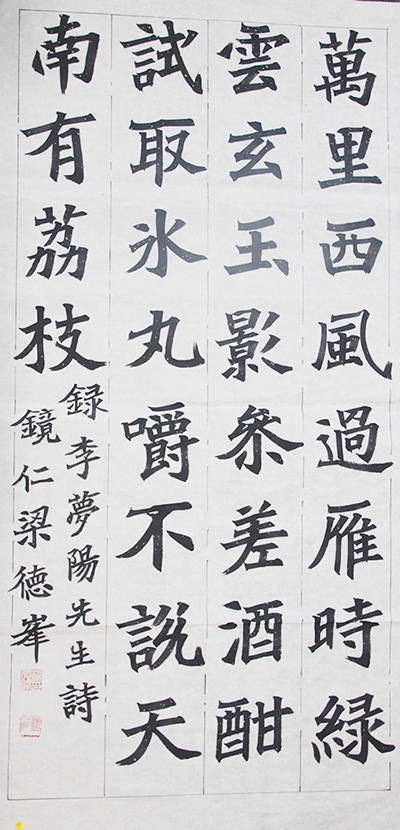 萬里西風過雁時緑
雲玄玉影參差酒酣
試取氷丸嚼不說天
南有荔枝
録李夢陽先生詩
鏡仁梁德峯